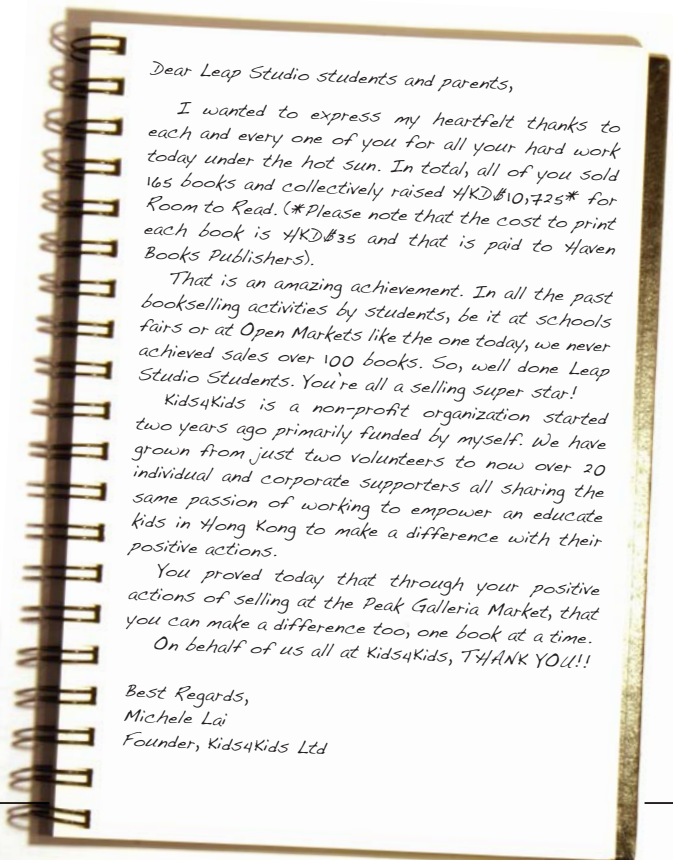 Dear Leap Studio students and parents,
I wanted to express my heartfelt thanks to
each and every one of you for all your hard work
today under the hot sun. In total, all of you sold
165 books and collectively raised HKD$10,725* for
Room to Read. (*Please note that the cost to print
each book is HKD$35 and that is paid to Haven
Books Publishers).
That is an amazing achievement. In all the past
bookselling activities by students, be it at schools
fairs or at Open Markets like the one today, we never
achieved sales over 100 books. So, well done Leap
Studio Students. You're all a selling super star!
Kids4Kids is a non-profit organization started
two years ago primarily funded by myself. We have
grown from just two volunteers to now over 20
individual and corporate supporters all sharing the
same passion of working to empower an educate
kids in Hong Kong to make a difference with their
positive actions.
You proved today that through your positive
actions of selling at the Peak Galleria Market, that
you can make a difference too, one book at a time.
On behalf of us all at Kids4Kids, THANK YOU!!
Best Regards,
Michele Lai
Founder, Kids4Kids Ltd